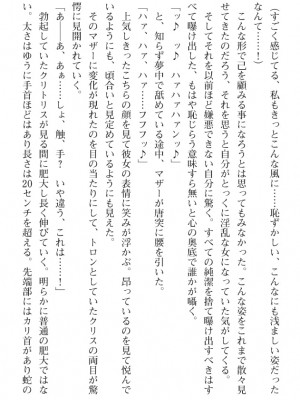 (すごく感じてる、私もきっとこんな風に……恥ずかしい、こんなにも浅ましい姿だった
なんて……!)
こんな形で己を顧みる事になろうとは思ってもみなかった。こんな姿をこれまで散々見
せてきたのだろう。それを思うと自分がとっくに淫乱な女になっていた気がしてくる。
そしてそれを以前ほど嫌悪できない自分に驚く。すべての純潔を捨て曝け出すべきはす
べて曝け出した、もはや恥じらう意味すら無いと心の奥底で誰かが囁く。
「ッ♪ ッ♪ ハァハァハアンッ♪」
と、知らず夢中で舐めている途中、マザーが唐突に腰を引いた。
「ハァ、ハァ、ハァ……フフフッ♪」
上気しきったこちらの顔を見て彼女の表情に笑みが浮かぶ。昂っているのを見て悦んで
いるようにも、頃合いと見定めているようにも見えた。
そのマザーに変化が現れたのを目の当たりにして、トロンとしていたクリスの両目が驚
愕に見開かれていく。
「あ、あ、あぁ……しょ、触、手? いや違う、これは……!」
勃起していたクリトリスが見る間に肥大し長く伸びていく。明らかに普通の肥大ではな
い。太さはゆうに手首ほどはあり長さは20センチを超える。先端部にはカリ首があり蛇の